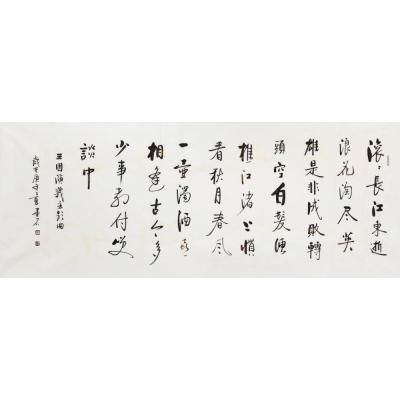 滚〻長江東逝
浪花淘尽英
雄是非成敗轉
頭空白髮漁
樵江渚上慣
看秋月春风
一壶濁酒喜
相逢古今多
少事都付笑
談中
三國演義主题曲